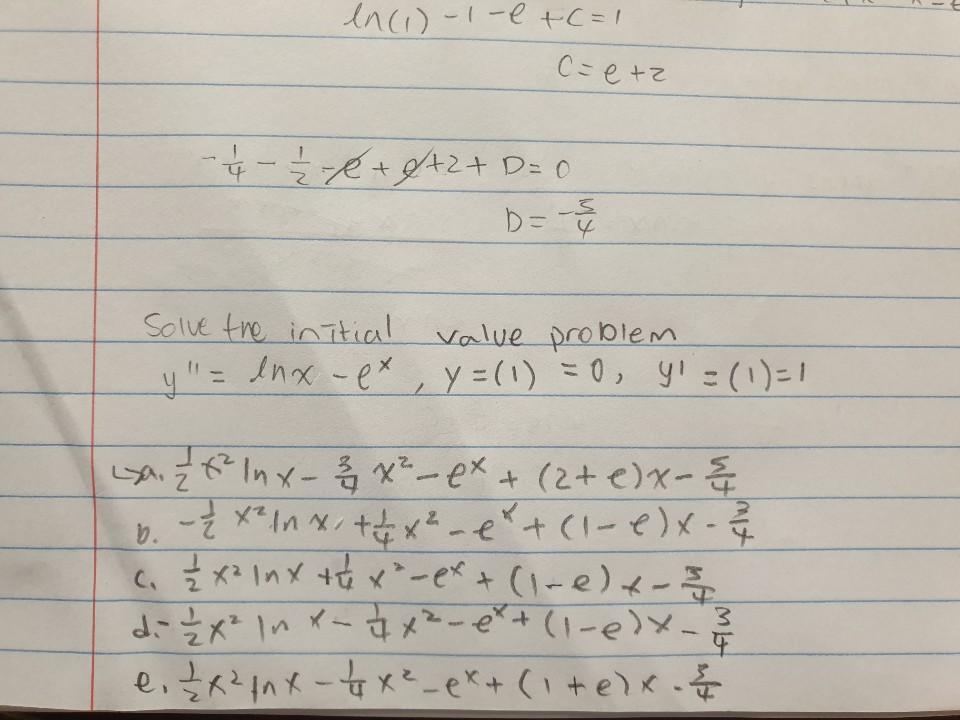 ln(1) - 1 - e + C = 1
C = e + 2
- 1/4 - 1/2 - e + e + 2 + D = 0
D = - 5/4
Solve the initial value problem
y'' = ln x - e^x , y = (1) = 0, y' = (1) = 1
↳a. 1/2 x² ln x - 3/4 x² - e^x + (2 + e)x - 5/4
b. - 1/2 x² ln x, + 1/4 x² - e^x + (1 - e)x - 3/4
c. 1/2 x² ln x + 1/4 x² - e^x + (1 - e)x - 3/4
d. - 1/2 x² ln x - 1/4 x² - e^x + (1 - e)x - 3/4
e. 1/2 x² ln x - 1/4 x² - e^x + (1 + e)x - 3/4